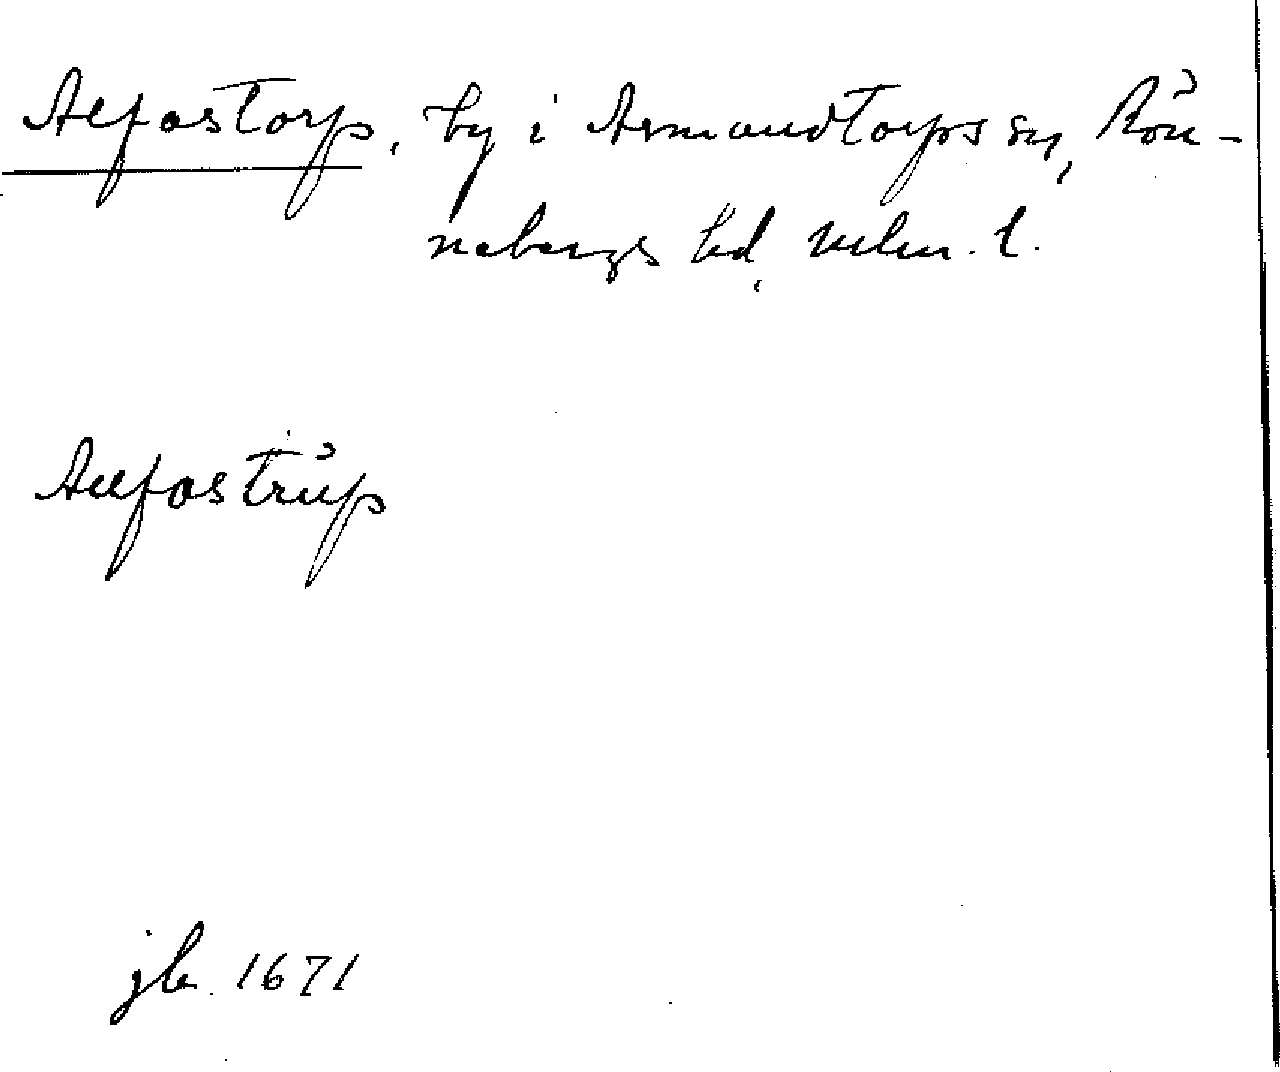 Alfastorp, by i Asmundtorps sn, Rön-
nebergs hd, Mlm. l.
Allfastrup
jb. 1671